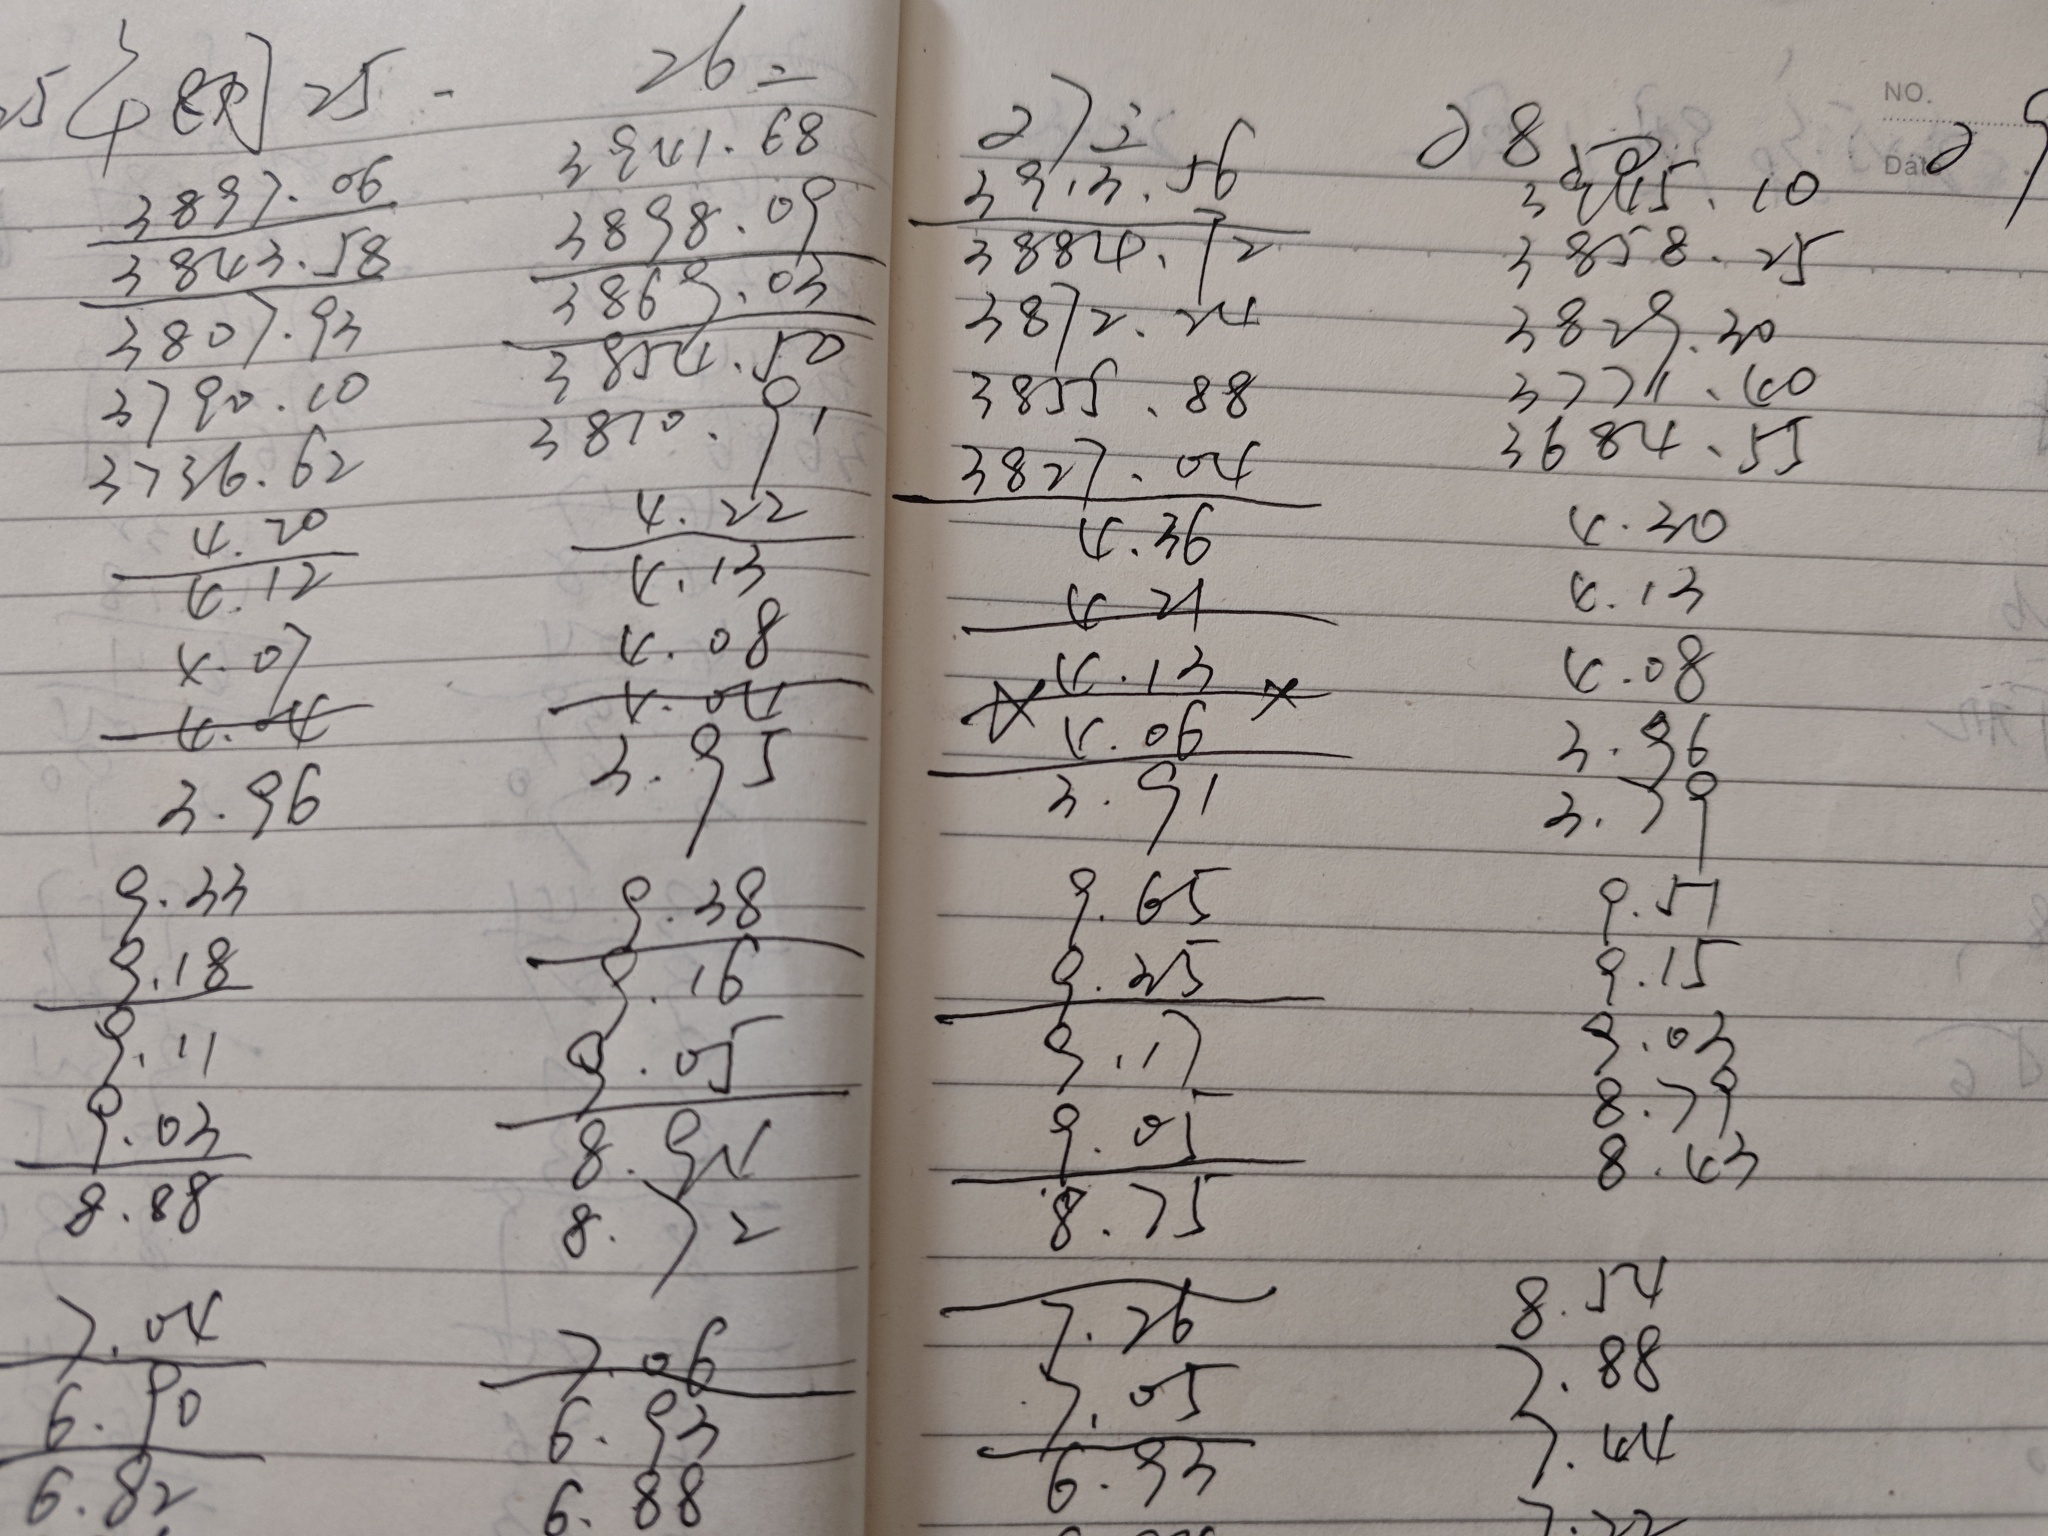 25年 8月 25 -
3897.06
3843.58
3807.93
3790.10
3736.62
4.20
4.12
4.07
4.04
3.96
9.33
9.18
9.11
9.03
8.88
7.04
6.90
6.82
26 二
3941.68
3898.09
3869.03
3854.50
3810.91
4.22
4.13
4.08
4.04
3.95
9.38
9.16
9.05
8.94
8.72
7.06
6.93
6.88
27 三
3913.56
3884.72
3872.24
3855.88
3827.04
4.36
4.21
4.13
4.06
3.91
9.65
9.25
9.17
9.05
8.75
7.26
7.05
6.93
NO.
Dat
28
10
3858.25
3829.30
3771.40
3684.55
4.30
4.13
4.08
3.96
3.79
9.51
9.15
9.03
8.79
8.43
8.54
7.88
7.44
7.22
29